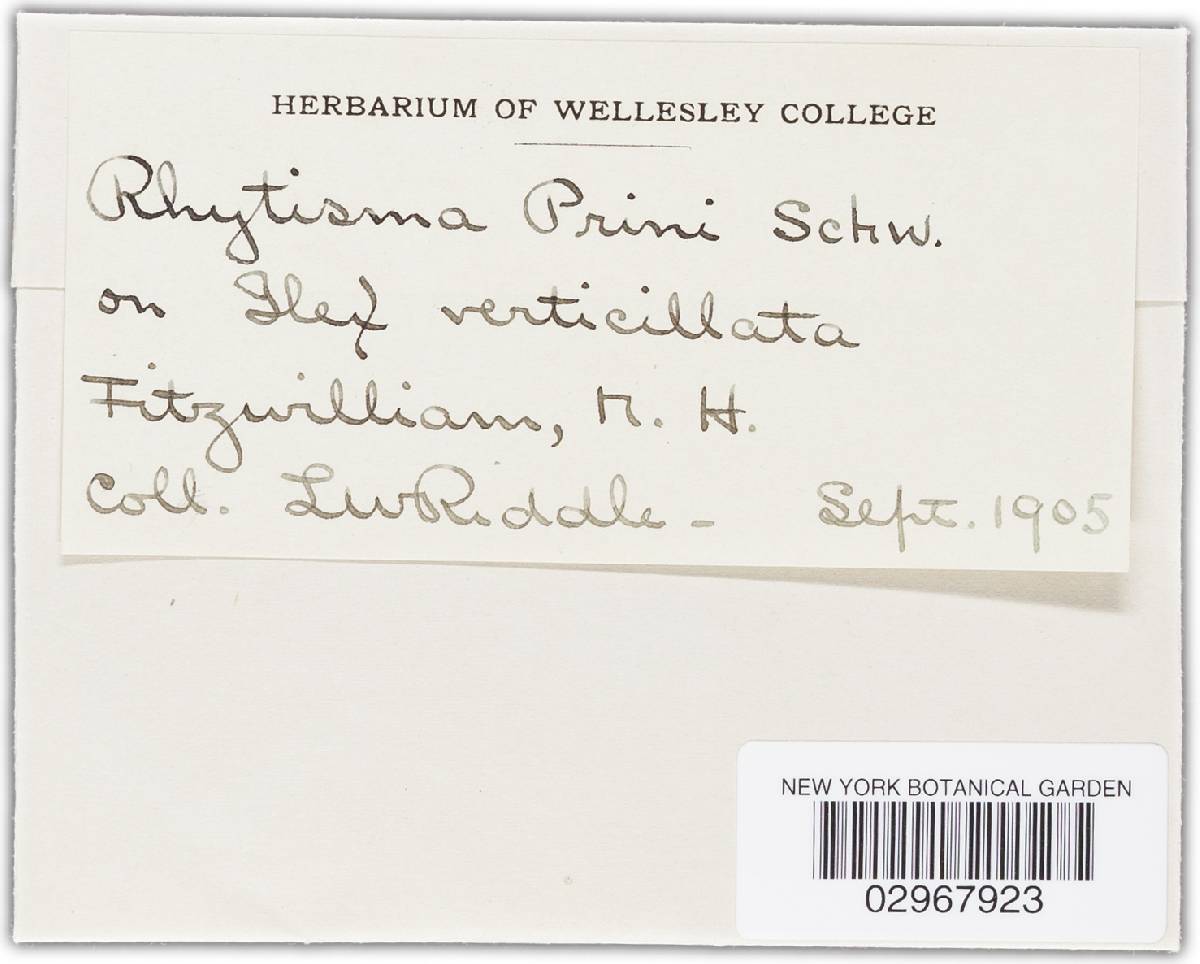 HERBARIUM OF WELLESLEY COLLEGE
Rhytisma Prini Schw.
on Ilex verticillata
Fitzwilliam, N. H.
Coll. LWRiddle - Sept. 1905
NEW YORK BOTANICAL GARDEN
02967923